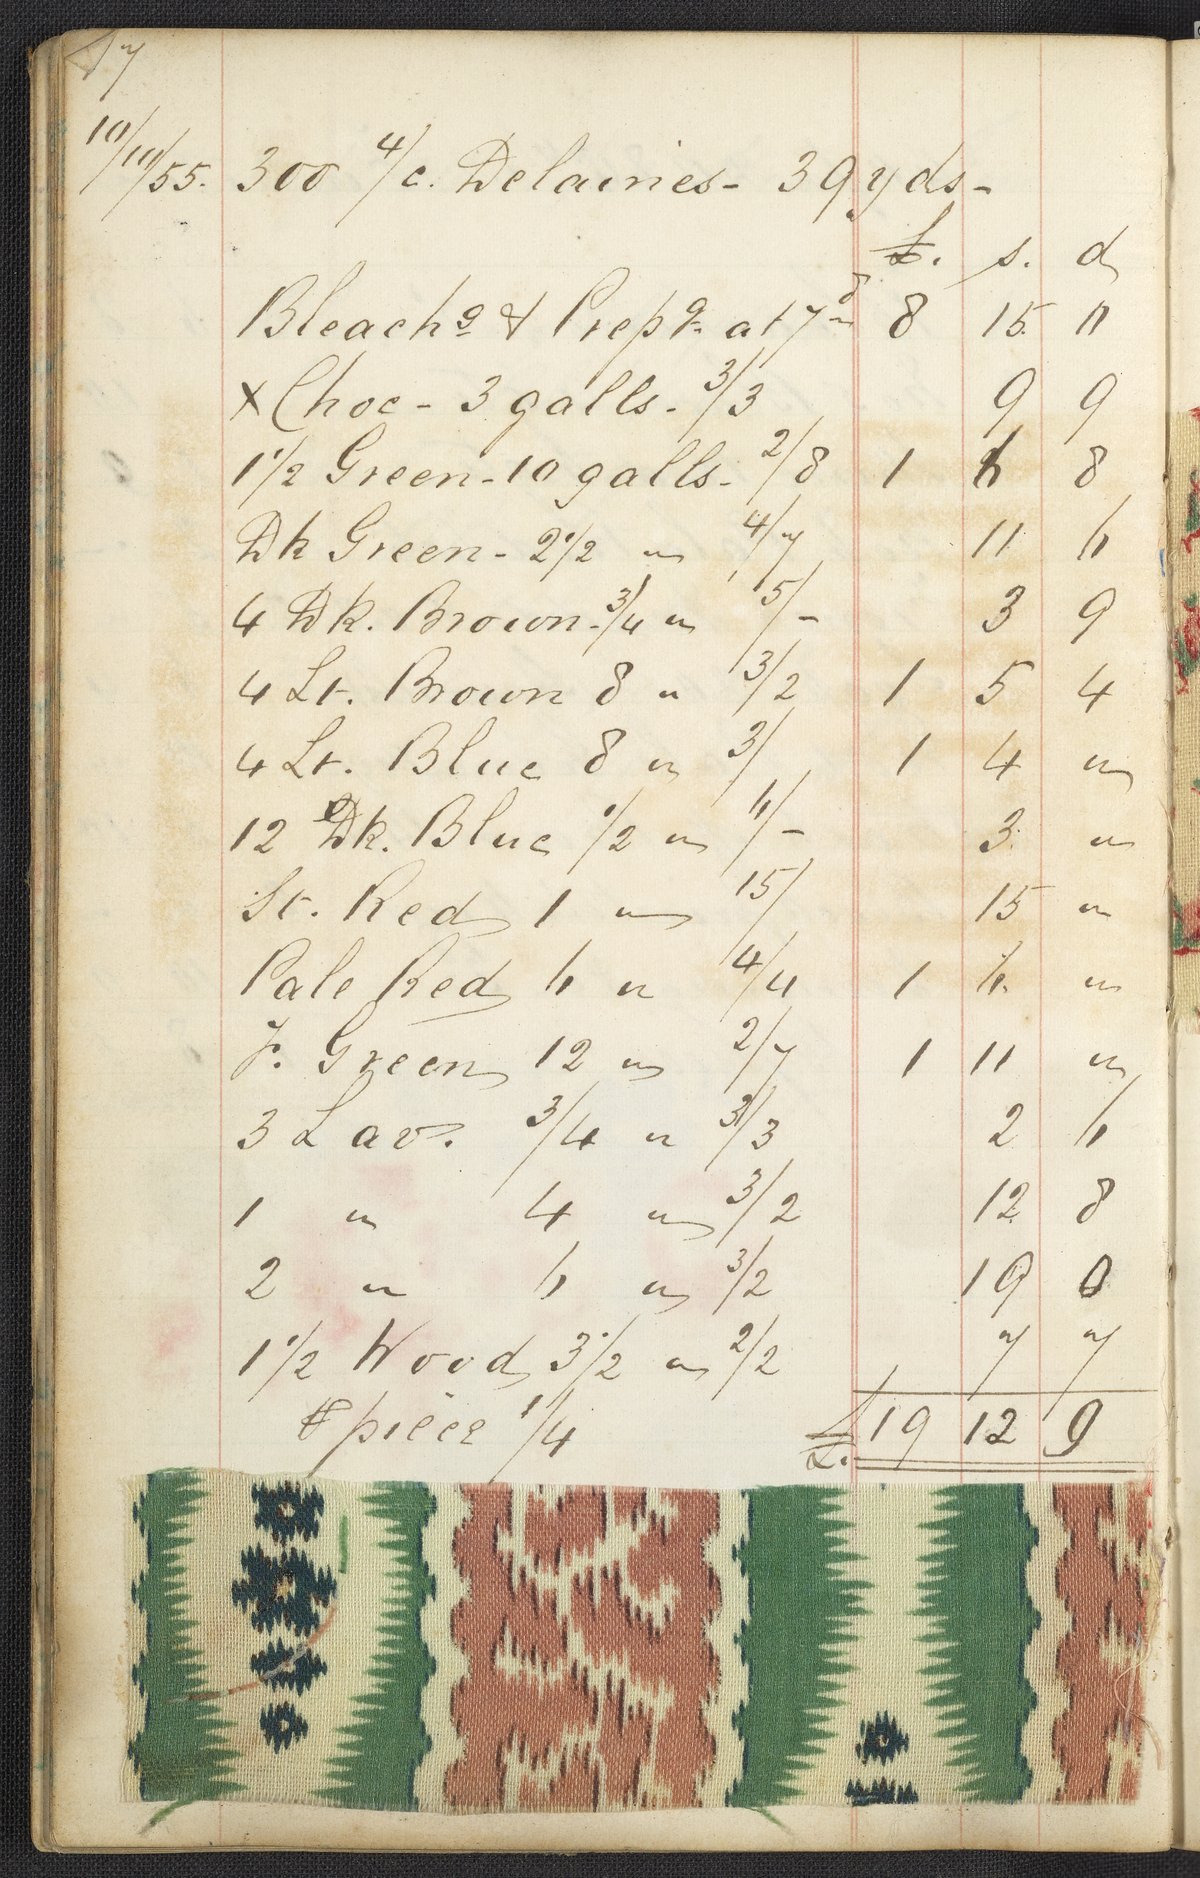 47
10/10/55. 300 4/c. Delaines - 39 yds -
£. s. d
Bleachg & Prepg at 7d 8 15 0
x Choc - 3 galls. 3/3 9 9
1 1/2 Green - 10 galls. 2/8 1 6 8
Dk Green - 2 1/2 " 4/7 11 6
4 Dk. Brown. 3/4 " 5/- 3 9
4 Lt. Brown 8 " 3/2 1 5 4
4 Lt. Blue 8 " 3/ 1 4 "
12 Dk. Blue 1/2 " 6/- 3 "
St. Red 1 " 15/ 15 "
Pale Red 6 " 4/4 1 6 "
F. Green 12 " 2/7 1 11 "
3 Lav. 3/4 " 3/3 2 6
1 " 4 " 3/2 12 8
2 " 6 " 3/2 19 0
1 1/2 Wood 3 1/2 " 2/2 7 7
piece 1/4 £. 19 12 9